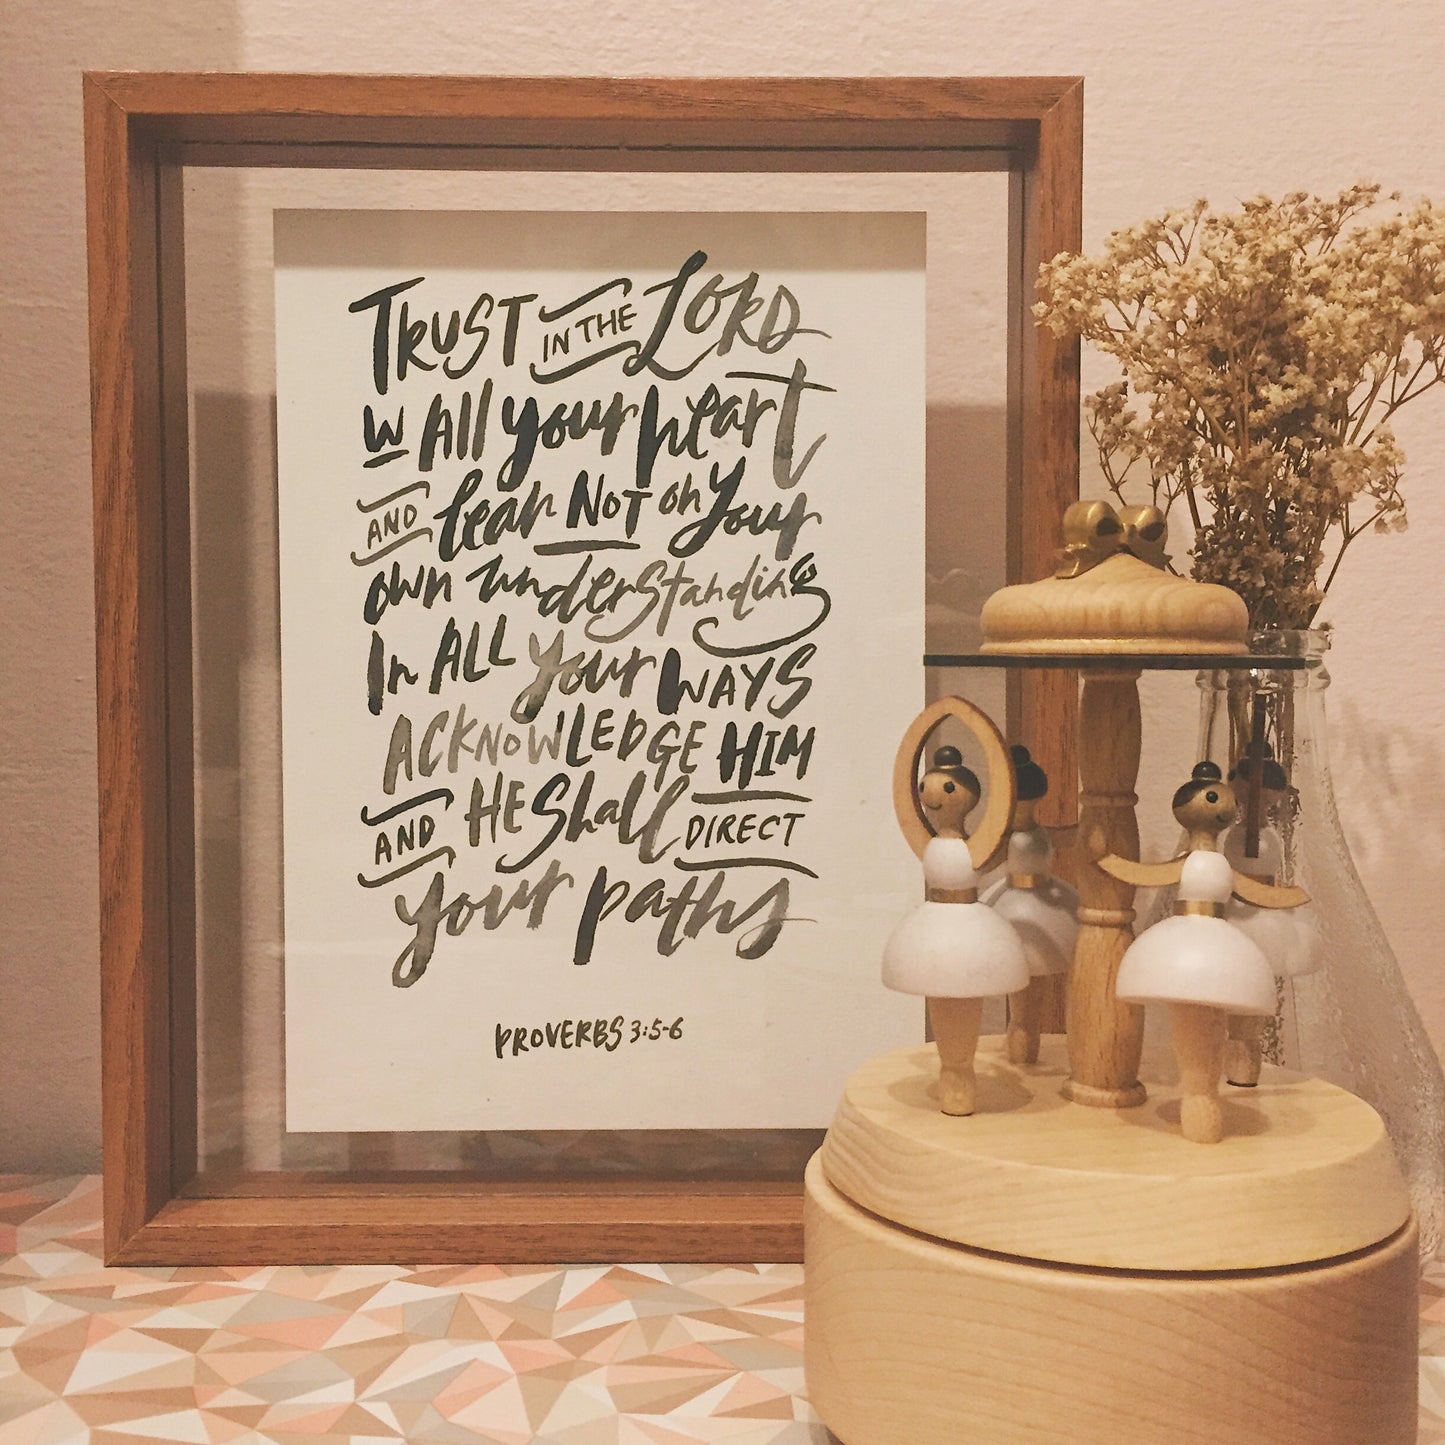 TRUST IN THE LORD
W All your heart
AND lean NOT on your
own understanding
In ALL your WAYS
ACKNOWLEDGE HIM
AND HE Shall DIRECT
your paths
PROVERBS 3:5-6